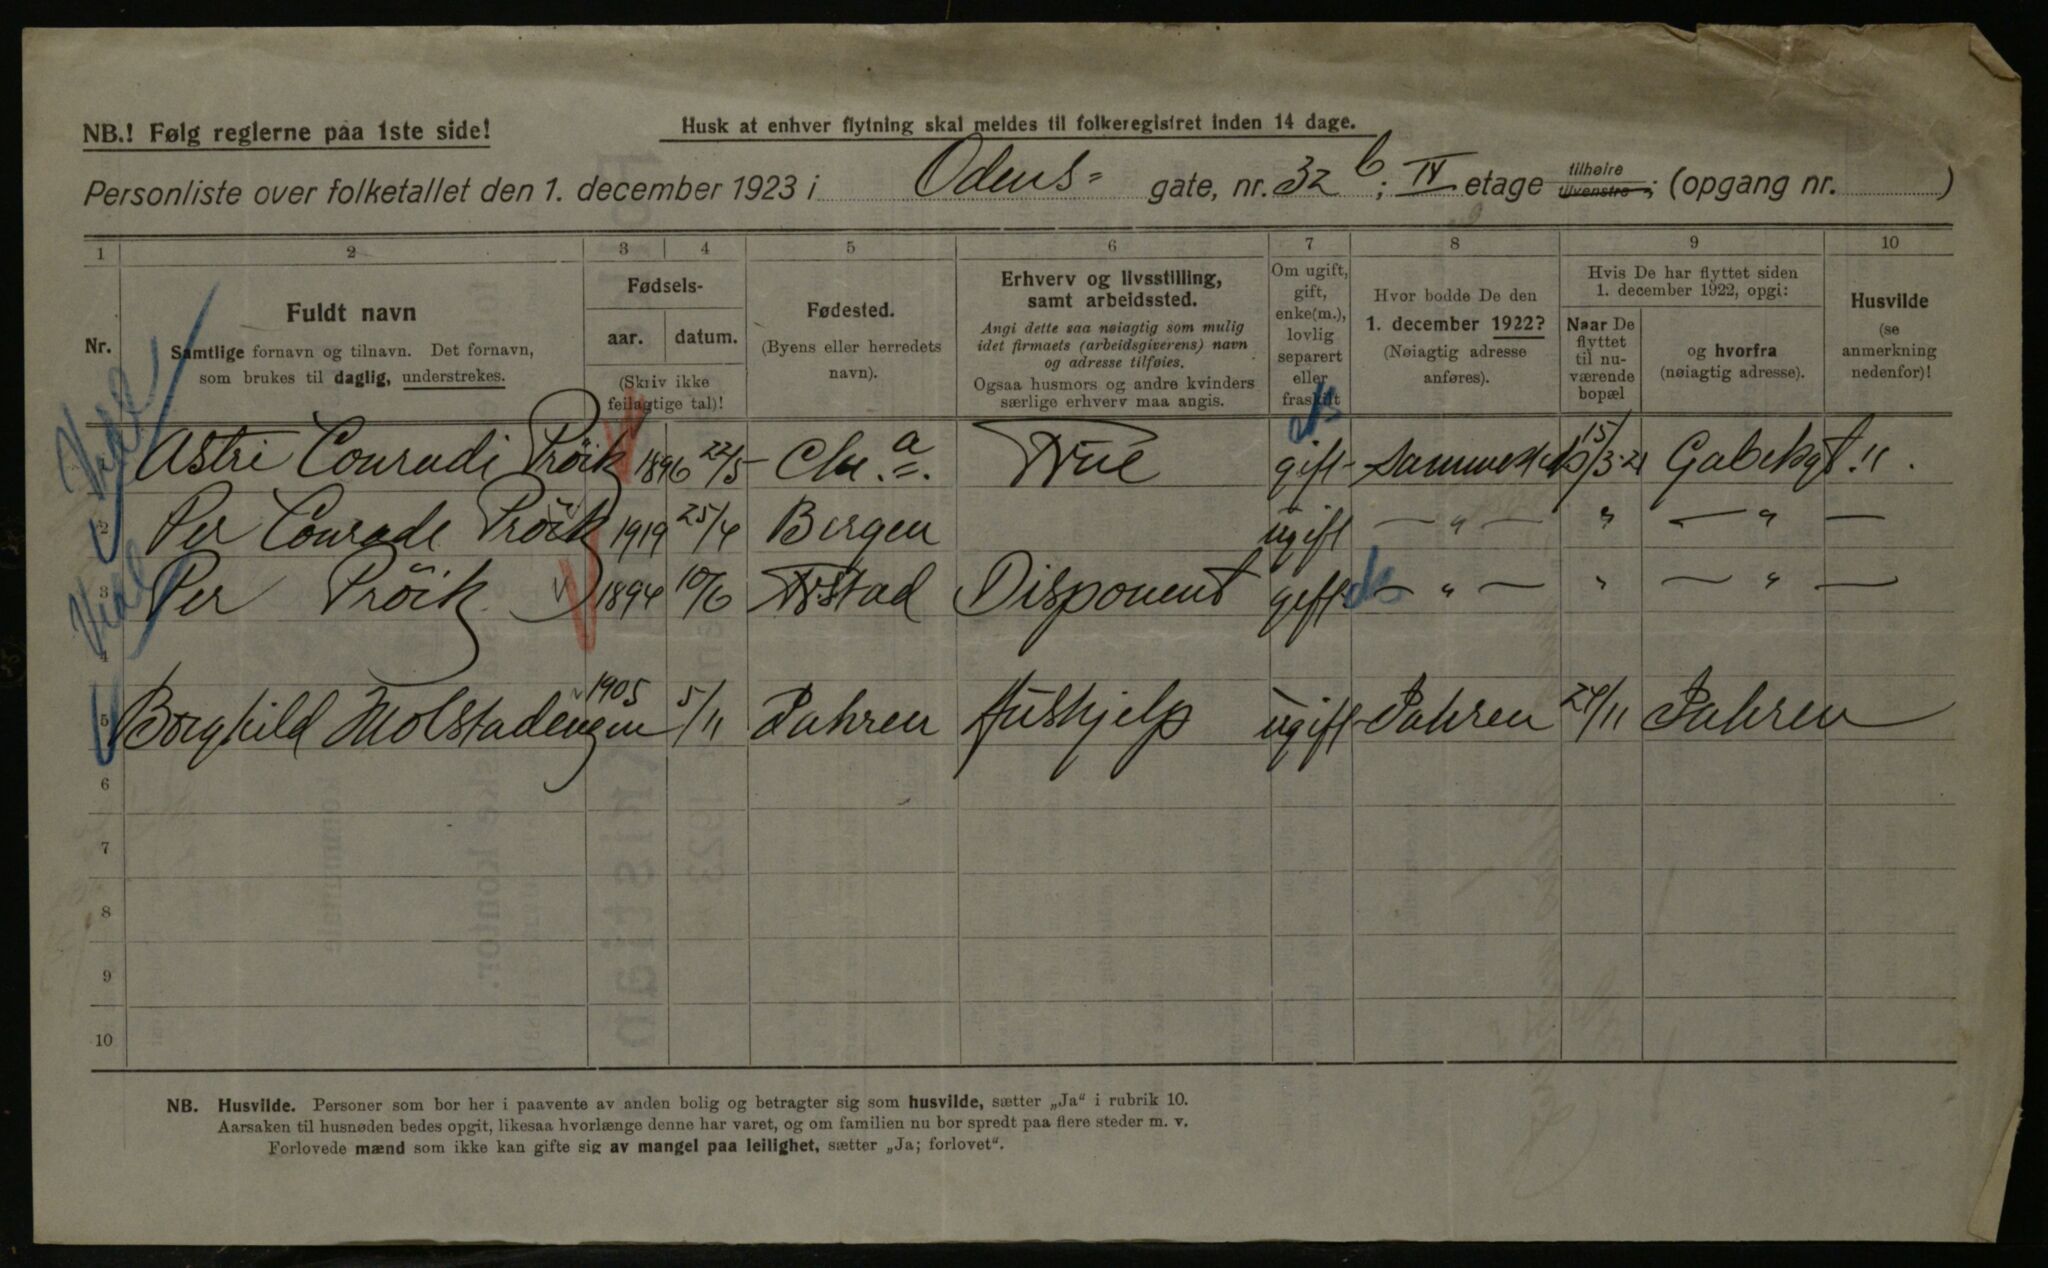 NB.! Følg reglerne paa 1ste side!
Husk at enhver flytning skal meldes til folkeregistret inden 14 dage.
Personliste over folketallet den 1. december 1923 i Odens= gate, nr. 32 b; IV etage tilhøire tilvenstre; (opgang nr. )
1 2 3 4 5 6 7 8 9 10
Nr.
Fuldt navn
Samtlige fornavn og tilnavn. Det fornavn,
som brukes til daglig, understrekes.
Fødsels-
aar. datum.
(Skriv ikke
feilagtige tal)!
Fødested.
(Byens eller herredets
navn).
Erhverv og livsstilling,
samt arbeidssted.
Angi dette saa nøiagtig som mulig
idet firmaets (arbeidsgiverens) navn
og adresse tilføies.
Ogsaa husmors og andre kvinders
særlige erhverv maa angis.
Om ugift,
gift,
enke(m.),
lovlig
separert
eller
fraskilt
Hvor bodde De den
1. december 1922?
(Nøiagtig adresse
anføres).
Hvis De har flyttet siden
1. december 1922, opgi:
Naar De
flyttet
til nu-
værende
bopæl
og hvorfra
(nøiagtig adresse).
Husvilde
(se
anmerkning
nedenfor)!
Astri Conradi Pröik 1896 22/5 Chr.a. Frue gift 15/3-21 Gabelsgt. 11.
2 Per Conrade Pröik 1919 25/4 Bergen ugift — " — " — " —
3 Per Pröik 1894 10/6 Årstad Disponent gift — " — " — " —
4
5 Borghild Molstadengen 1905 5/11 Jahren Hushjelp ugift Jahren 24/11 Jahren
6
7
8
9
10
NB. Husvilde. Personer som bor her i paavente av anden bolig og betragter sig som husvilde, sætter „Ja" i rubrik 10.
Aarsaken til husnøden bedes opgit, likesaa hvorlænge denne har varet, og om familien nu bor spredt paa flere steder m. v.
Forlovede mænd som ikke kan gifte sig av mangel paa leilighet, sætter „Ja; forlovet".